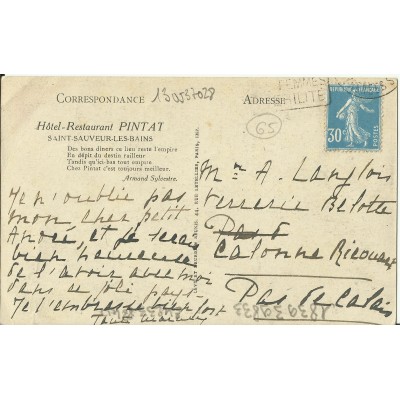 CORRESPONDANCE
130537028
ADRESSE
FEMMES
RÉPUBLIQUE FRANÇAISE
30c
POSTES
65
Hôtel-Restaurant PINTAT
SAINT-SAUVEUR-LES-BAINS
Des bons dîners ce lieu reste l'empire
En dépit du destin railleur
Tandis qu'ici-bas tout empire
Chez Pintat c'est toujours meilleur.
Armand Sylvestre.
Je n'oublie pas
mon cher petit
André, et je serais
bien heureuse
de l'avoir avec moi
dans ce joli pays.
Je l'embrasse bien fort
Mr A. Langlois
Verrerie Belotte
Calonne Ricouart
Pas de Calais